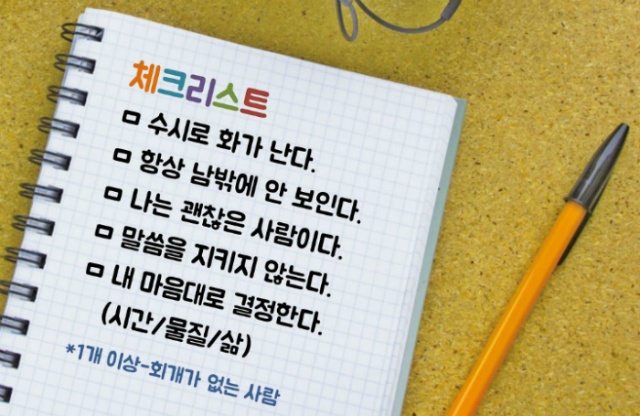 체크리스트
ㅁ 수시로 화가 난다.
ㅁ 항상 남밖에 안 보인다.
ㅁ 나는 괜찮은 사람이다.
ㅁ 말씀을 지키지 않는다.
ㅁ 내 마음대로 결정한다.
(시간/물질/삶)
*1개 이상-회개가 없는 사람